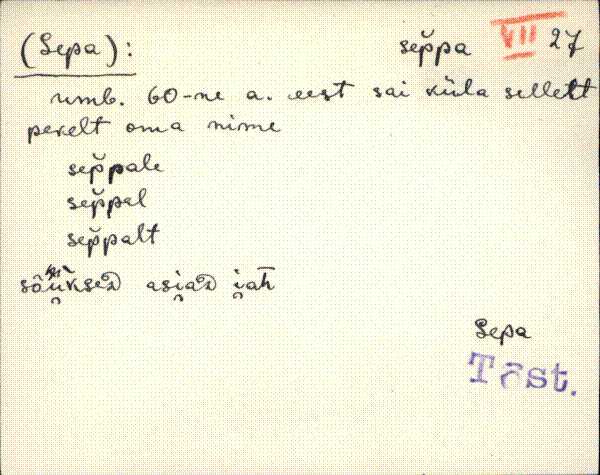 (Sepa): sep̆pa VII 27
umb. 60-ne a. eest sai küla sellelt
perelt oma nime
sep̆pale
sep̆pal
sep̆palt
asi̯aᴅ i̯ah
Sepa
Tõst.